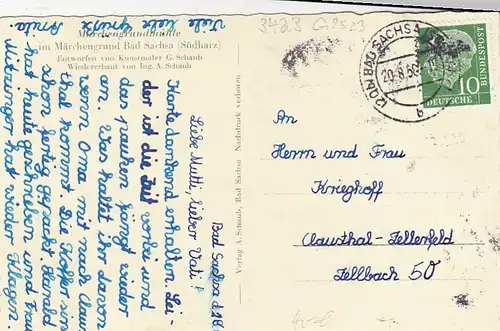 Märchengrundmühle
im Märchengrund Bad Sachsa (Südharz)
Entworfen von Kunstmaler G. Schaub
Wiedererbaut von Ing. A. Schaub
Bad Sachsa d.
Liebe Mutti, lieber Vati!
Karte dankend erhalten. Lei-
der ist die Zeit vorbei und
das pauken fängt wieder
an. Was haltet ihr davon
wenn Oma mit nach Claus
thal kommt. Die Koffer sind
schon fertig gepackt. Harald
hat heute geschrieben und Frau
hat wieder
Viele liebe Grüße
Verlag A. Schaub, Bad Sachsa Nachdruck verboten
3423 G 2523
(20b) BAD SACHSA
20.8.56
b
DEUTSCHE BUNDESPOST
10
An
Herrn und Frau
Krieghoff
Clausthal-Zellerfeld
Zellbach 50